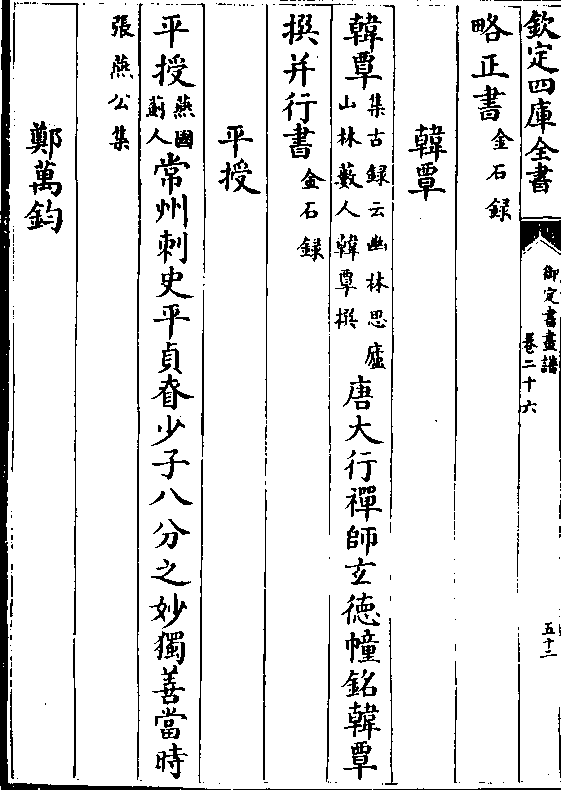 欽定四庫全書
御定書畫譜
卷二十六
五十二
略正書金石録
韓覃
韓覃集古録云幽林思廬
山林藪人韓覃撰
唐大行禪師玄德幢銘韓覃
撰并行書金石録
平授
平授燕國
薊人
常州刺史平貞眘少子八分之妙獨善當時
張燕公集
鄭萬鈞